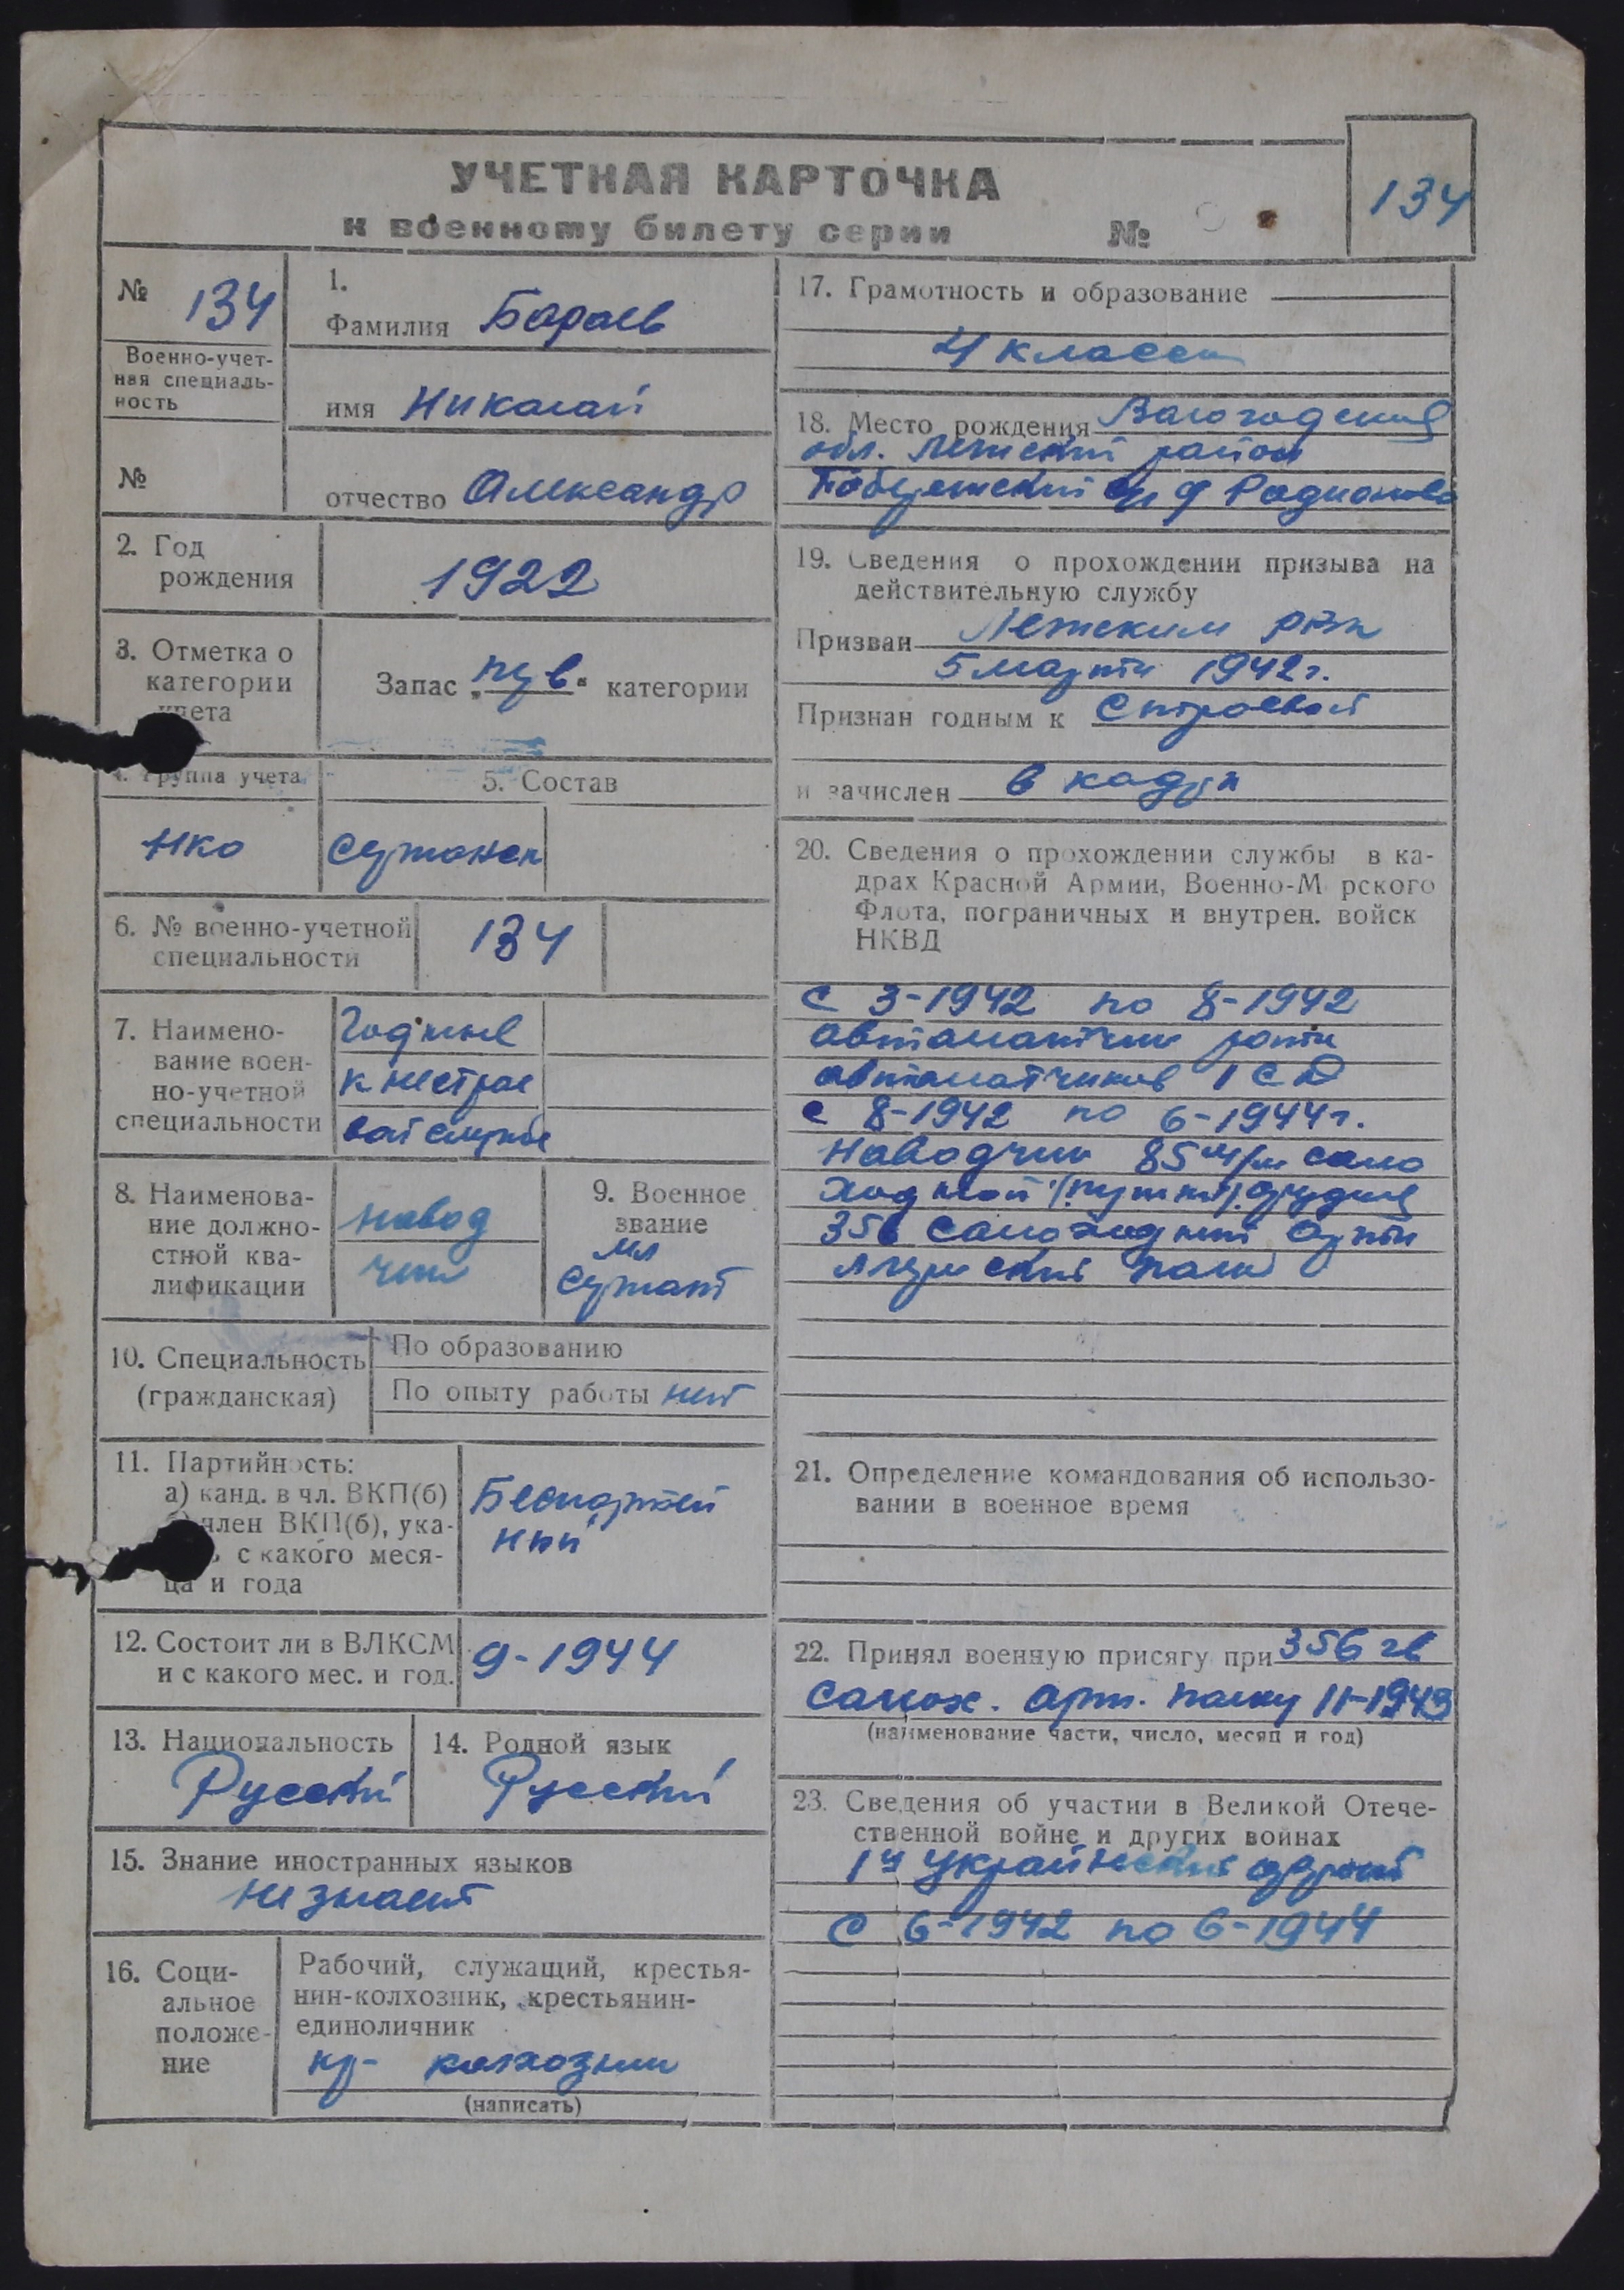 134
УЧЕТНАЯ КАРТОЧКА
к военному билету серии №
№ 134
Военно-учет-
ная специаль-
ность
№
1.
Фамилия Бараев
имя Николай
отчество Александр
2. Год
рождения
1922
3. Отметка о
категории
учета
Запас „ " категории
4. Группа учета
нко
5. Состав
6. № военно-учетной
специальности
134
7. Наимено-
вание воен-
но-учетной
специальности
Годные
к нестрое
вой службе
8. Наименова-
ние должно-
стной ква-
лификации
навод
чик
9. Военное
звание
мл
сержант
10. Специальность
(гражданская)
По образованию
По опыту работы нет
11. Партийность:
а) канд. в чл. ВКП(б)
член ВКП(б), ука-
с какого меся-
ца и года
Беспартей
ный
12. Состоит ли в ВЛКСМ
и с какого мес. и год.
9-1944
13. Национальность
Русский
14. Родной язык
Русский
15. Знание иностранных языков
не знает
16. Соци-
альное
положе-
ние
Рабочий, служащий, крестья-
нин-колхозник, крестьянин-
единоличник
кр- колхозник
(написать)
17. Грамотность и образование
4 класса
18. Место рождения Вологодская
обл. Лежский район
с/с д Родионово
19. Сведения о прохождении призыва на
действительную службу
Призван Лежским рвк
5 марта 1942г.
Признан годным к строевой
и зачислен в кадры
20. Сведения о прохождении службы в ка-
драх Красной Армии, Военно-М рского
Флота, пограничных и внутрен. войск
НКВД
С 3-1942 по 8-1942
автоматчик роты
автоматчиков 1 СД
с 8-1942 по 6-1944г.
Наводчик 85 м/м само
ходной (пушки) орудия
356 самоходный арти
лерийский полк
21. Определение командования об использо-
вании в военное время
22. Принял военную присягу при 356 гв
самох. арт. полку 11-1943
(наименование части, число, месяц и год)
23. Сведения об участии в Великой Отече-
ственной войне и других войнах
1й Украйнский фронт
С 6-1942 по 6-1944